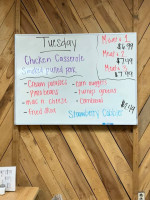 Tuesday
Chicken Casserole
Smoked pulled pork
- Cream potatoes
- corn nuggets
- Pinto beans
- turnip greens
- mac n cheese
- cornbread
- fried okra
Strawberry Cobbler
$1.99
Meat + 1
$6.99
Meat + 2
$7.49
Meat + 3
$7.99